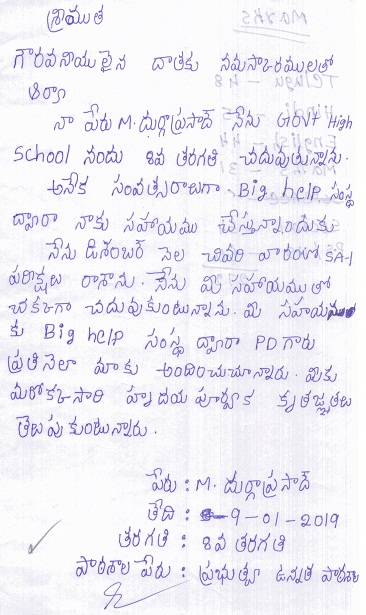 శ్రీయుత
గౌరవనీయులైన దాతకు నమస్కారములతో
ఆర్యా
నా పేరు M. దుర్గాప్రసాద్ నేను GOVT High
School నందు 8వ తరగతి చదువుతున్నాను.
అనేక సంవత్సరాలుగా Big help సంస్థ
ద్వారా నాకు సహాయము చేస్తున్నాందుకు
నేను డిశెంబర్ నెల చివరి వారంలో SA-1
పరీక్షలు రాశాను. నేను మీ సహాయముతో
చక్కగా చదువుకుంటున్నాను. మీ సహాయము
కు Big help సంస్థ ద్వారా PD గారు
ప్రతినెలా మాకు అందించుచూన్నారు. మీకు
మరొకసారి హృదయ పూర్వక కృతజ్ఞతలు
తెలుపుకుంటున్నారు.
పేరు : M. దుర్గాప్రసాద్
తేది : 9-01-2019
తరగతి : 8వ తరగతి
పాఠశాల పేరు : ప్రభుత్వా ఉన్నత పాఠశాల